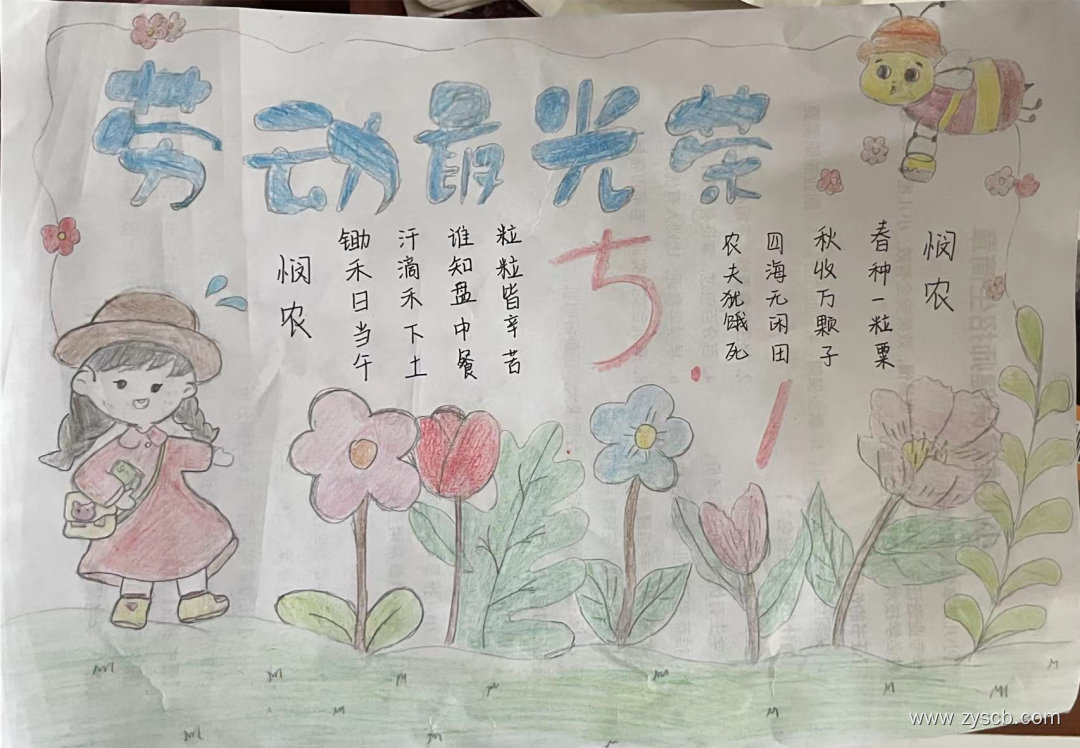 劳动最光荣
悯农
春种一粒粟
秋收万颗子
四海无闲田
农夫犹饿死
5.1
悯农
锄禾日当午
汗滴禾下土
谁知盘中餐
粒粒皆辛苦
www.zyscb.com